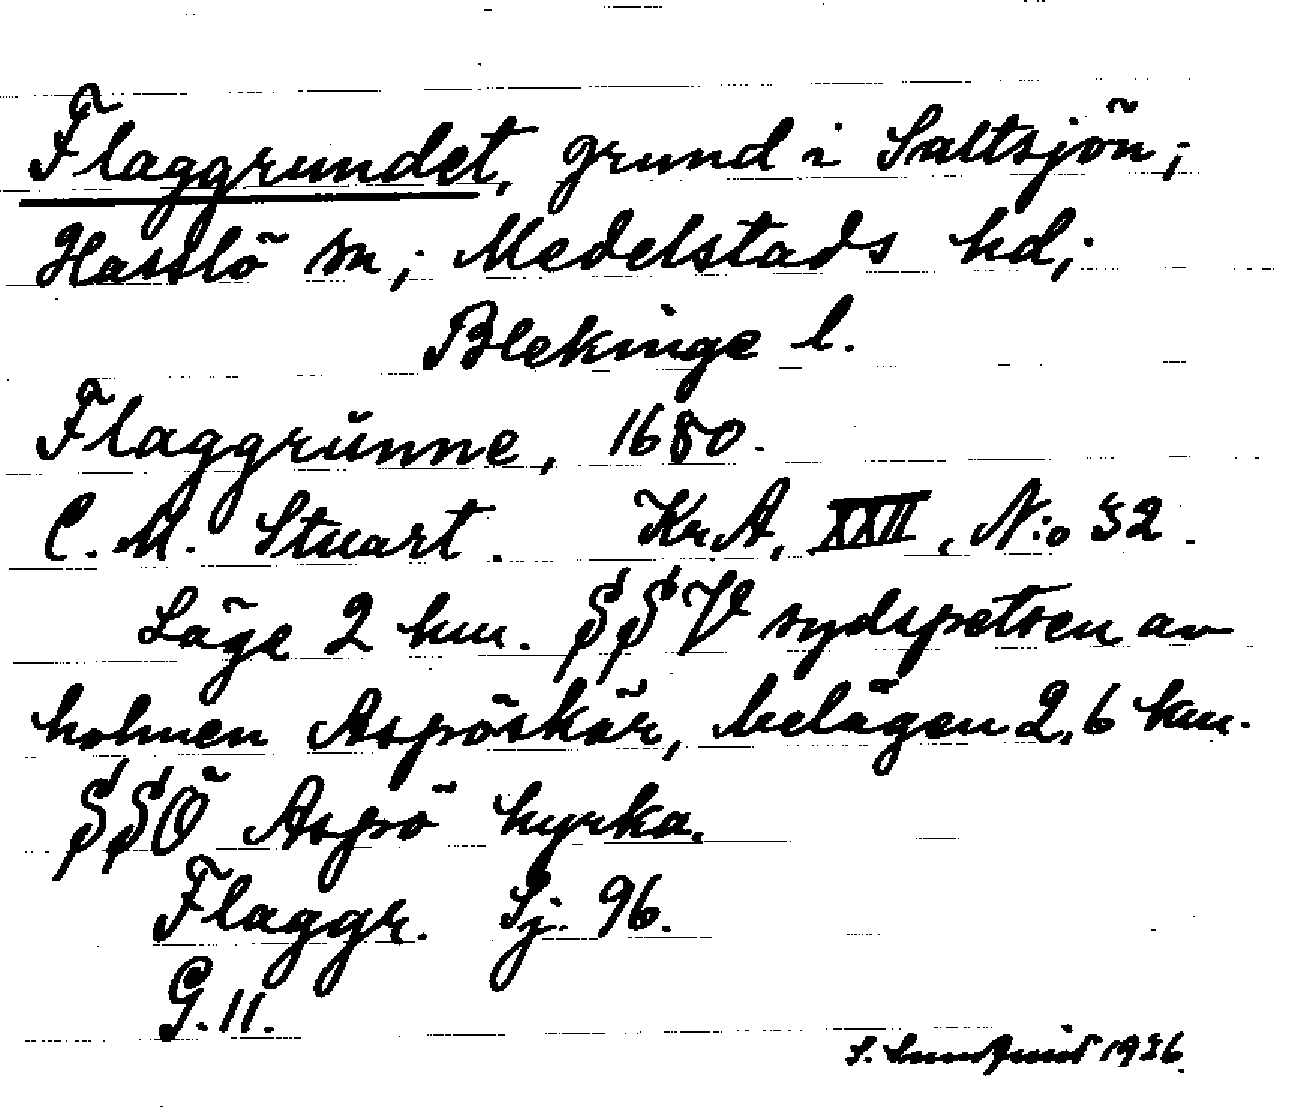 Flaggrundet, grund i Saltsjön;
Hasslö sn; Medelstads hd;
Blekinge l.
Flaggrŭnne, 1680.
C. M. Stuart. Kr.A, XXII, N:o 32.
Läge 2 km. SSV sydspetsen av
holmen Aspöskär, belägen 2,6 km.
SSÖ Aspö kyrka.
Flaggr. Sj. 96.
G. 11.
S. Lundquist 1936.